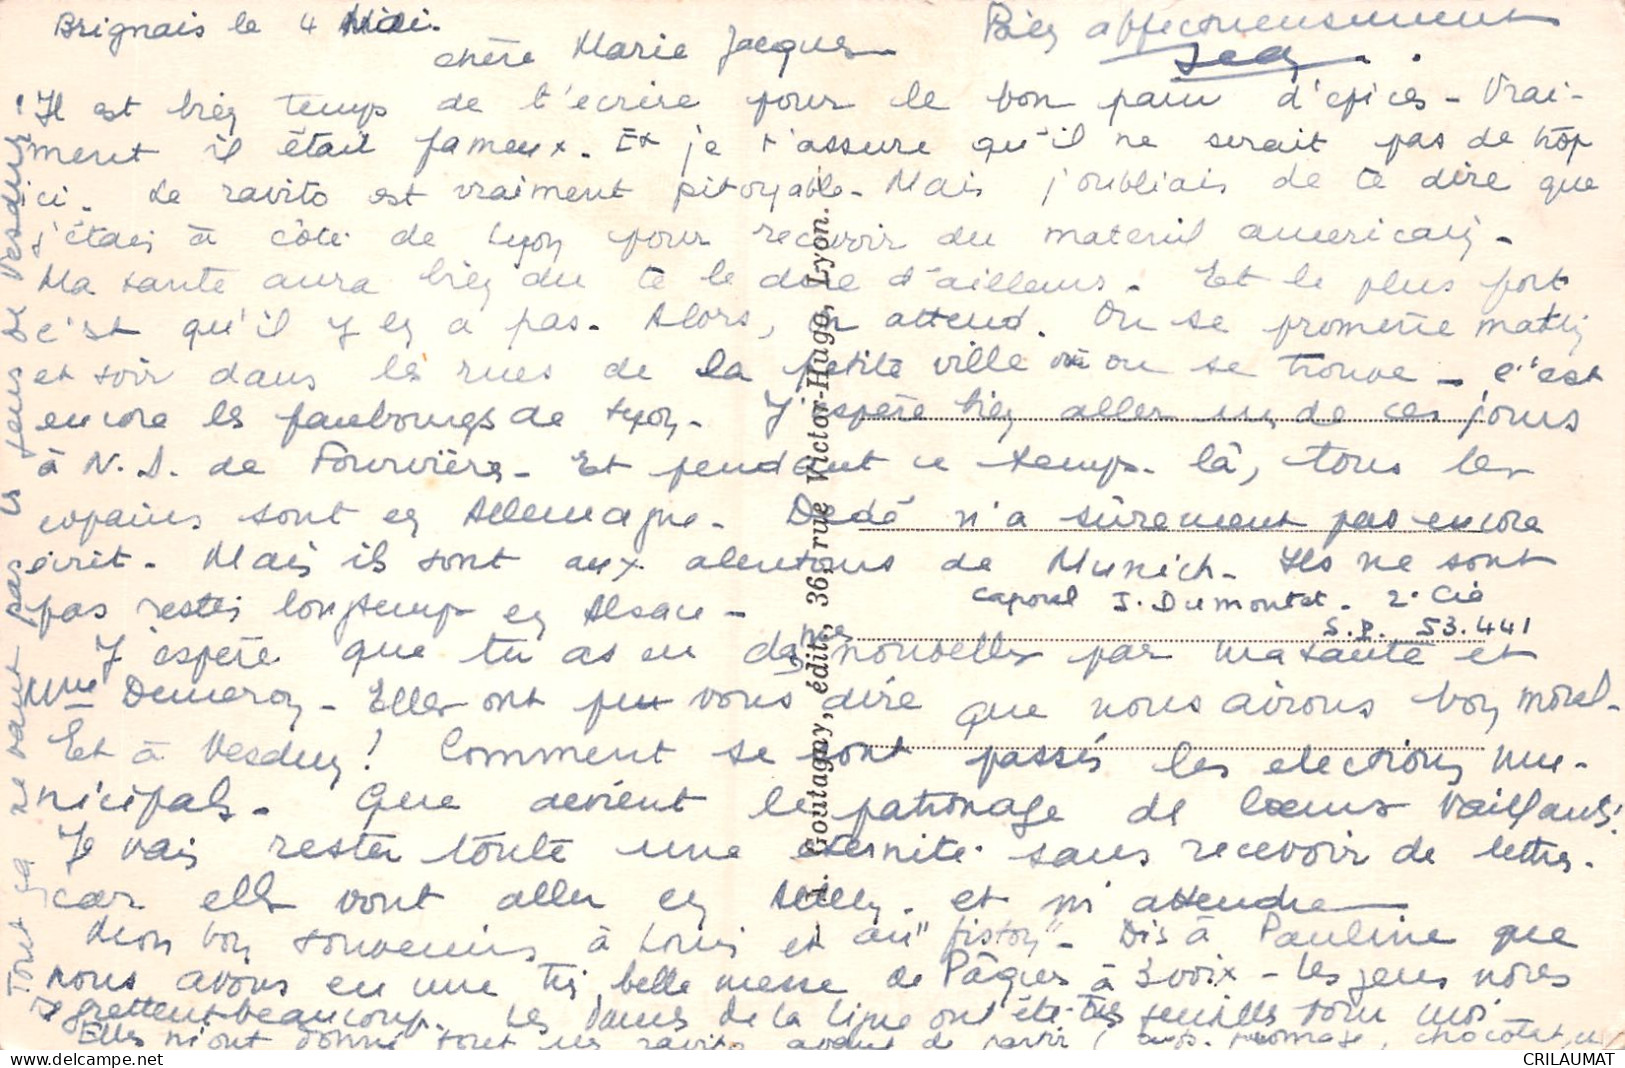 Brignais le 4 Mai.
chère Marie Jacques
Il est bien temps de t'ecrire pour le bon pain d'epices - Vrai-
ment il était fameux. Et je t'assure qu'il ne serait pas de trop
ici. Le ravito est vraiment pitoyable - Mais j'oubliais de te dire que
j'étais à côté de Lyon pour recevoir du materiel americain -
Ma tante aura bien du te le dire d'ailleurs. Et le plus fort
c'est qu'il y en a pas. Alors, on attend. On se promène matin
et soir dans les rues de la petite ville où on se trouve - c'est
encore les faubourgs de Lyon. J'espère bien aller un de ces jours
à N.D. de Fourvière - Et pendant ce temps-là, tous les
copains sont en Allemagne. Dédé n'a sûrement pas encore
écrit. Mais ils sont aux alentours de Munich. Ils ne sont
pas restés longtemps en Alsace -
caporal J. Dumontet. 2e Cie
S.P. 53.441
J'espère que tu as eu de mes nouvelles par ma tante et
Mme Demeron - Elles ont pu vous dire que nous avions bon moral.
Et à Vesdun! Comment se sont passés les elections mu-
nicipals. Que devient le patronage de Cœurs Vaillants!
Je vais rester toute une eternité sans recevoir de lettres.
car elles vont aller en Allem. et m'attendre
Mon bon souvenir à Louis et au "fiston" - Dis à Pauline que
nous avons eu une très belle messe de Pâques à 3 voix - Les jeunes
regrettent beaucoup. Les Dames de la Ligue ont été très gentilles pour moi
Elles m'ont donné tout un ravito avant de partir ( fromage, chocolat,
Tout ça ne vaut pas les gens de Vesdun!
Bien affectueusement
A. Goutagny, édit., 36, rue Victor-Hugo, Lyon.
CRILAUMAT